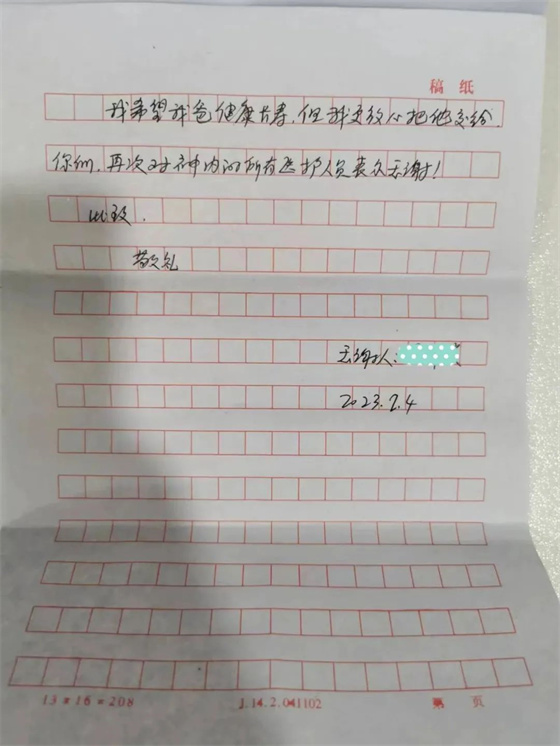 稿 纸
我希望我爸健康长寿,但我更放心把他交给
你们,再次对神内的所有医护人员表示感谢!
此致,
敬礼
感谢人:
2023.2.4
13×16=208 J.14.2.041102 第 页